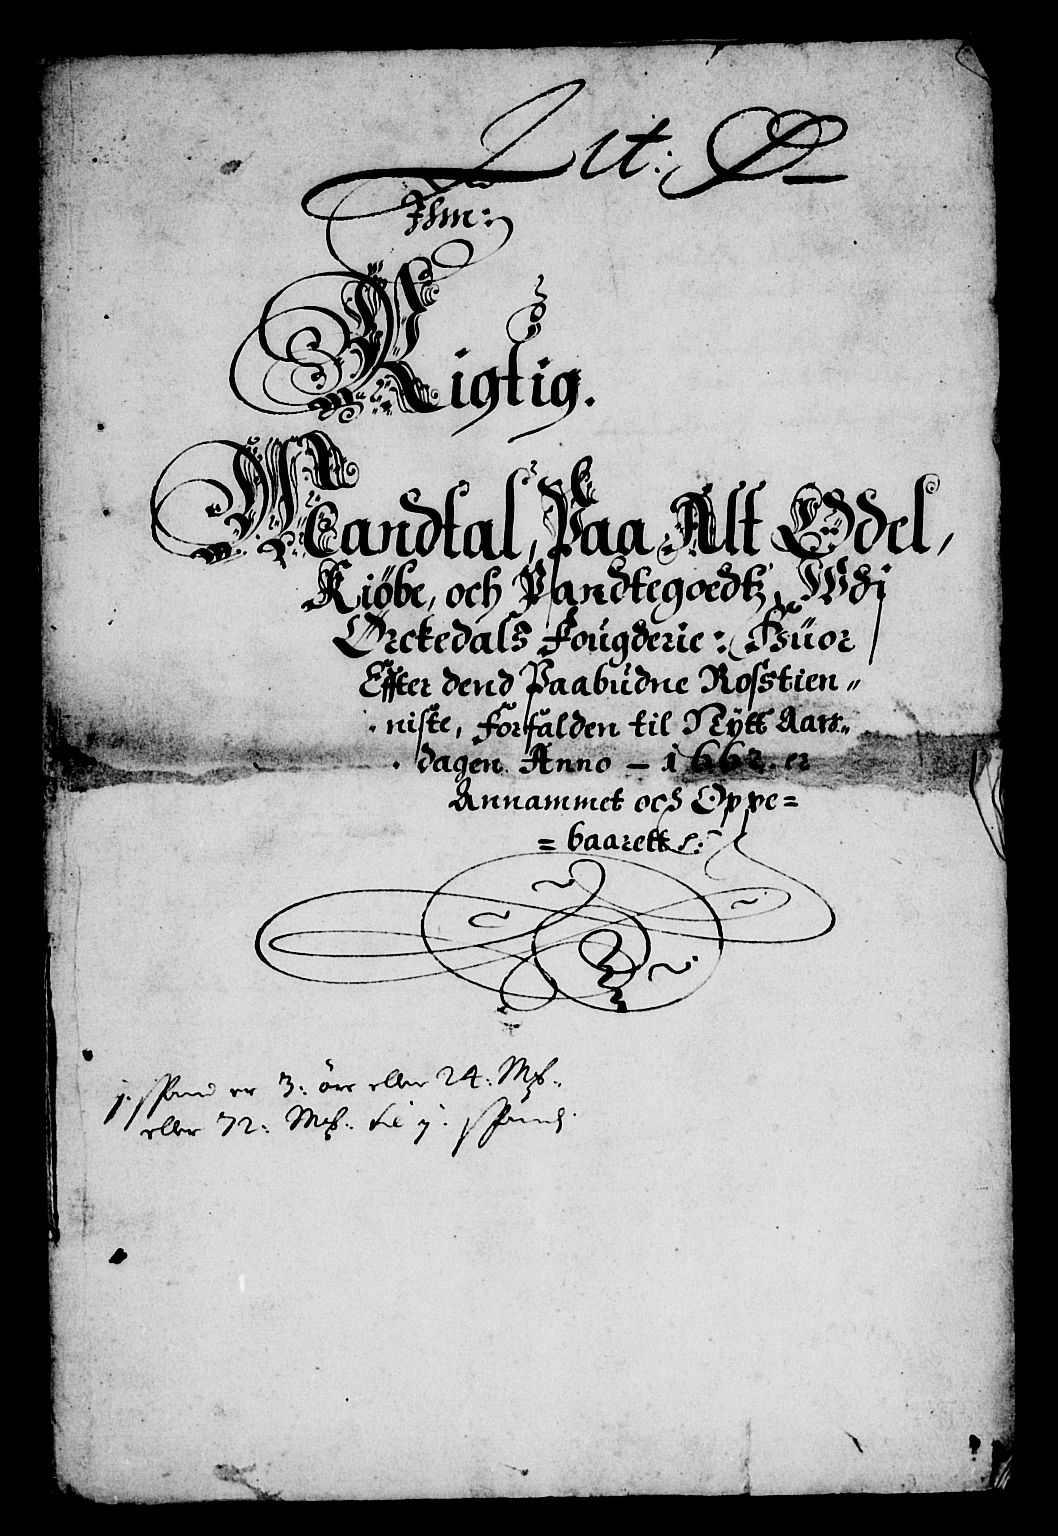 Lit: D
Jhm:
Rigtig.
Mandtal, Paa Alt Odel,
Kiöbe, och Pandtegoedtz, Wdi
Ørckedals Fougderie: Huor
Effter dend Paabudne Rosstien„
niste, forfalden til Nytt Aars„
dagen Anno – 1662. er
Annammet och Oppe=
= baarett
j. sPand er 3: öre eller 24: Mk.
eller 72: Mk. til j: sPand.